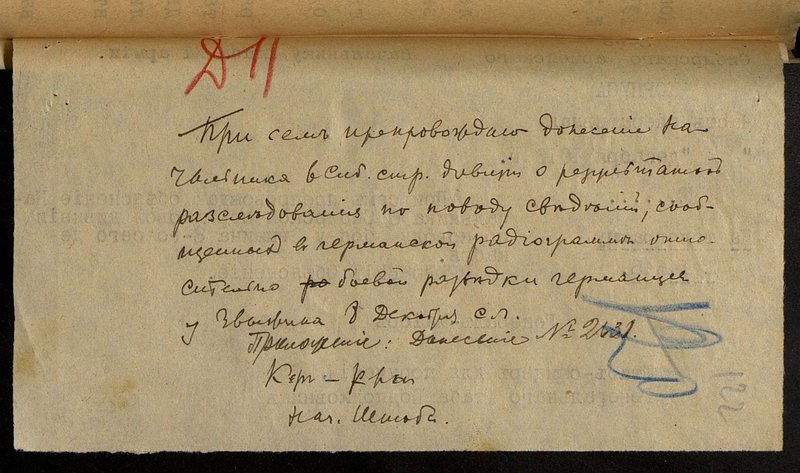 Д 11
При семъ препровождаю донесенiе на-
чальника 8 Сиб. стр. дивизiи о результатахъ
разслѣдованiя по поводу свѣдѣнiй, сооб-
щенныхъ въ германской радiограммѣ отно-
сительно боевой развѣдки германцевъ
у 8 Декабря с.г.
Приложенiе: Донесенiе №
Кор-
Нач. Штаба.
122